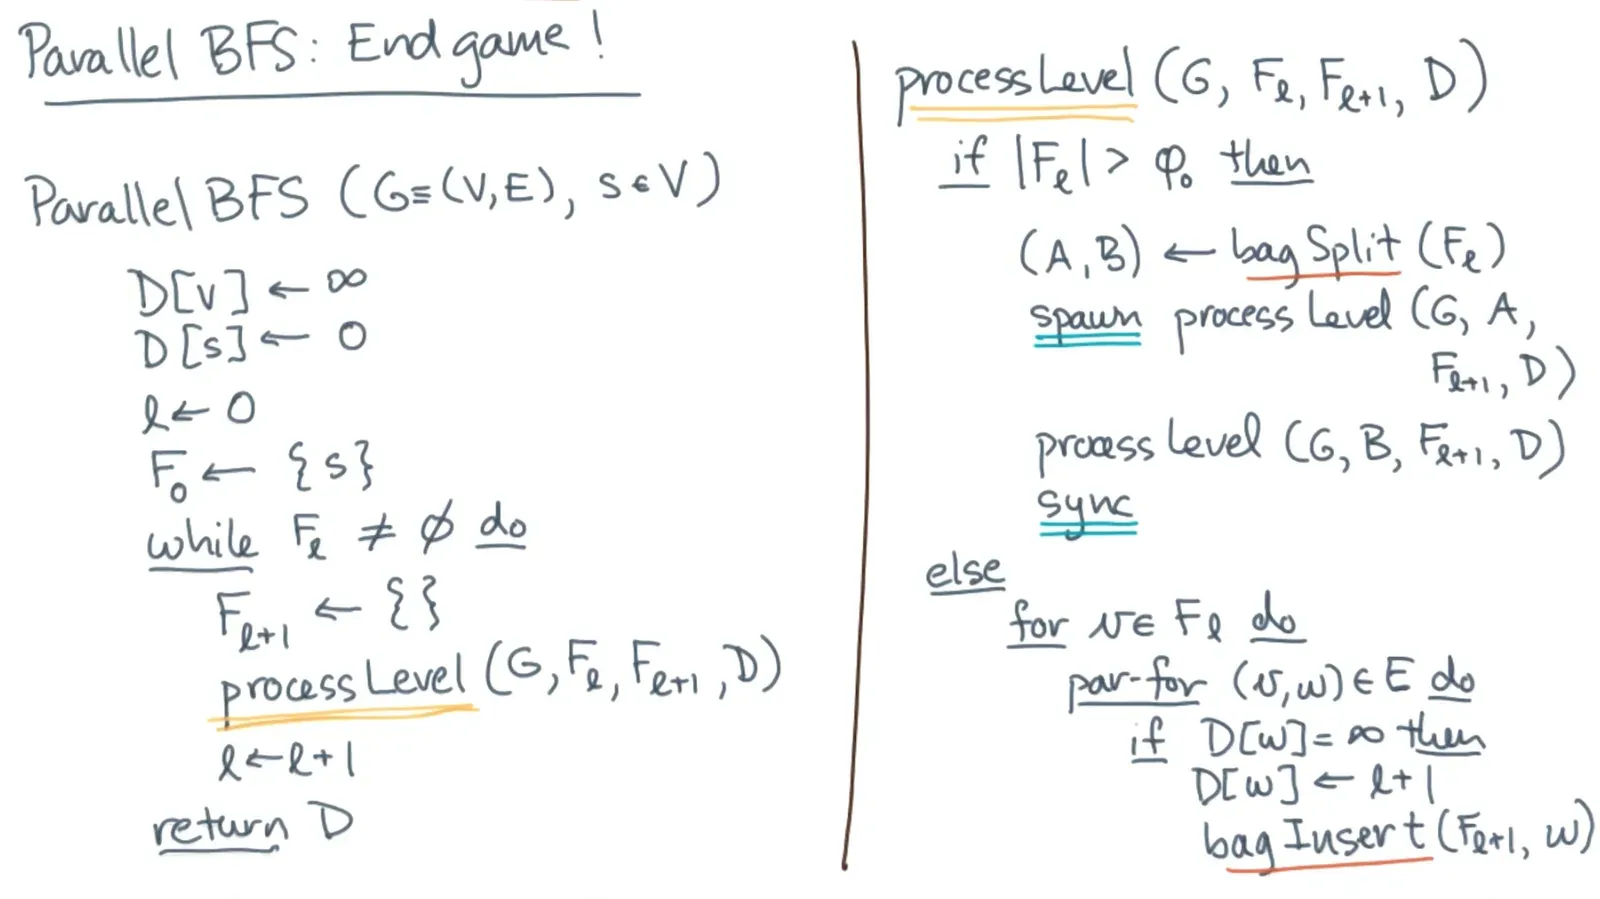 Parallel BFS: Endgame!
Parallel BFS (G≡(V,E), s∈V)
D[v] ← ∞
D[s] ← 0
ℓ ← 0
F₀ ← {s}
while Fℓ ≠ ∅ do
Fℓ+1 ← {}
processLevel (G, Fℓ, Fℓ+1, D)
ℓ ← ℓ+1
return D
processLevel (G, Fℓ, Fℓ+1, D)
if |Fℓ| > φ₀ then
(A, B) ← bagSplit (Fℓ)
spawn processLevel (G, A,
Fℓ+1, D)
processLevel (G, B, Fℓ+1, D)
sync
else
for v∈ Fℓ do
par-for (v,w) ∈ E do
if D[w] = ∞ then
D[w] ← ℓ+1
bagInsert (Fℓ+1, w)